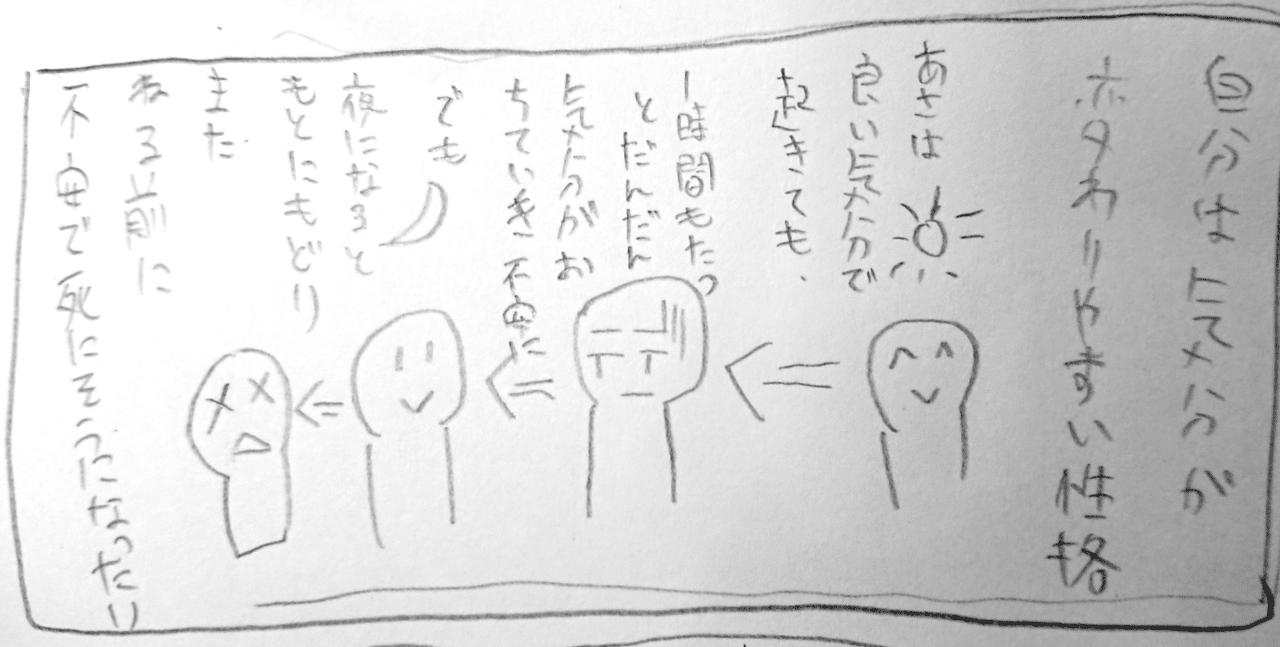 自分は気分が
変わりやすい性格
あさは
良い気分で
起きても、
1時間もたつ
とだんだん
気分がお
ちていき不安に
でも
夜になると
もとにもどり
また
ねる前に
不安で死にそうになったり